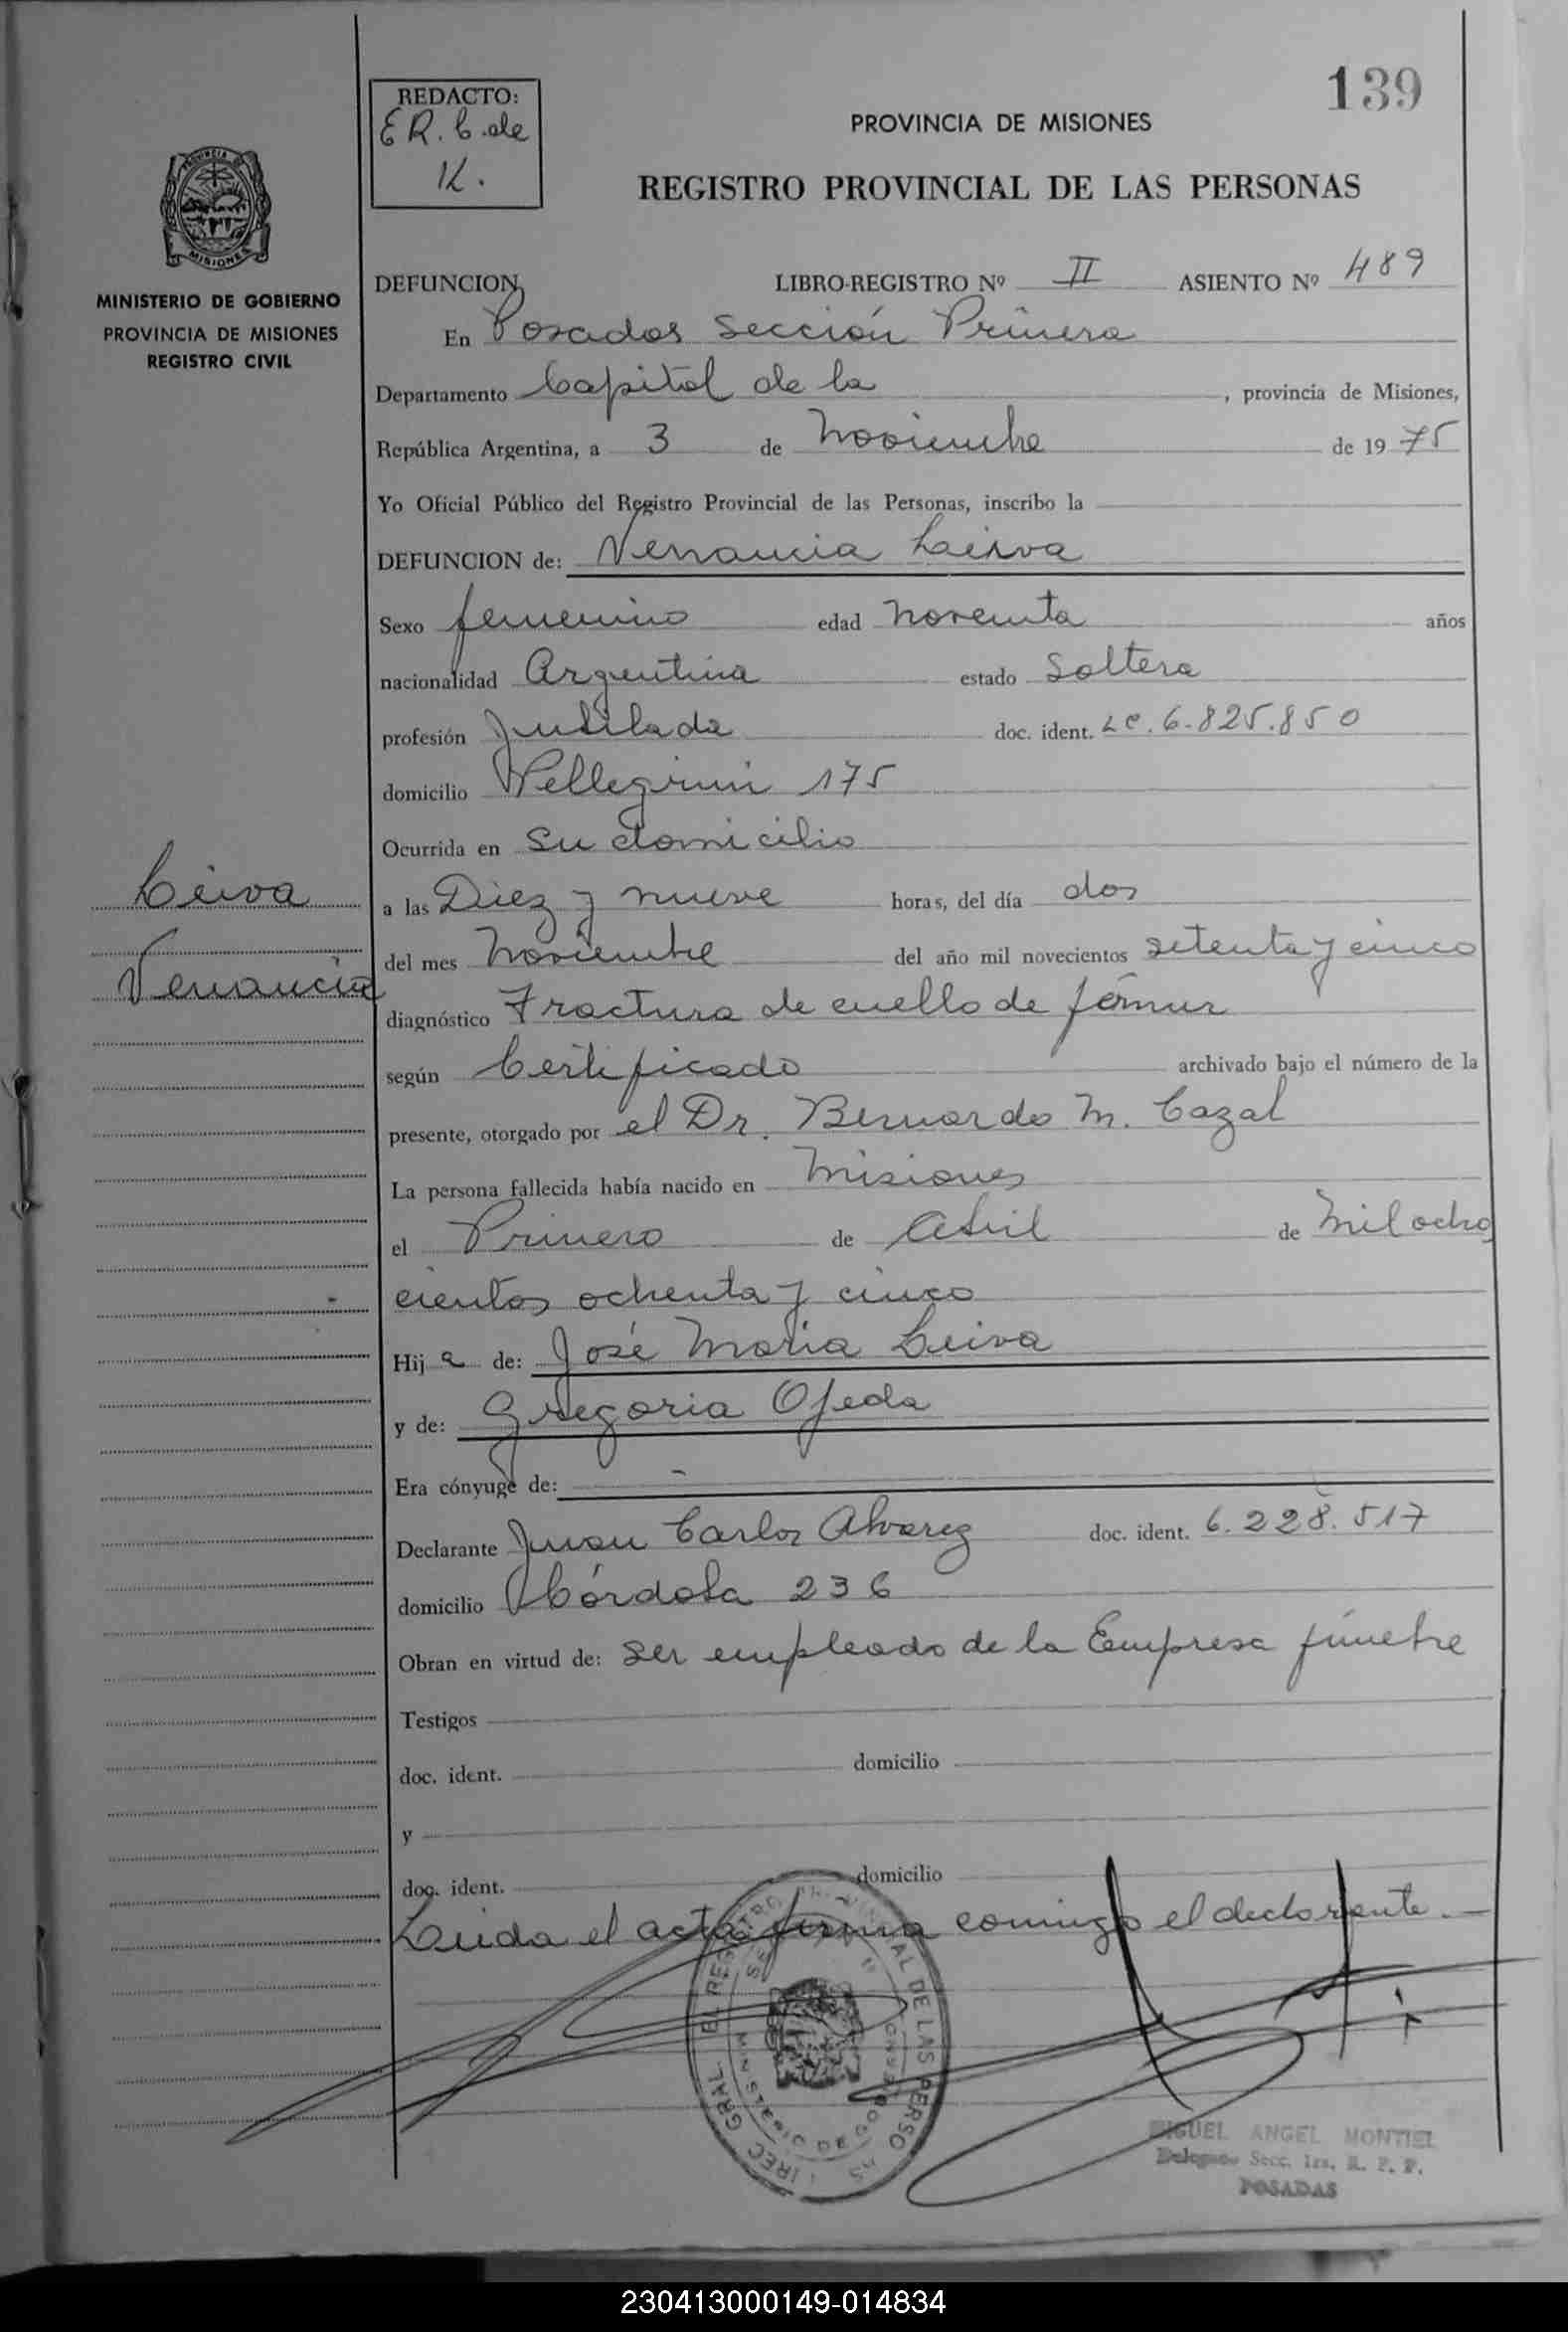 139
REDACTO:
E R. C. de
K.
PROVINCIA DE MISIONES
REGISTRO PROVINCIAL DE LAS PERSONAS
PROVINCIA DE
MISIONES
MINISTERIO DE GOBIERNO
PROVINCIA DE MISIONES
REGISTRO CIVIL
DEFUNCION LIBRO-REGISTRO Nº II ASIENTO Nº 489
En Posadas Sección Primera
Departamento Capital de la , provincia de Misiones,
República Argentina, a 3 de Noviembre de 1975
Yo Oficial Público del Registro Provincial de las Personas, inscribo la
DEFUNCION de: Venancia Leiva
Sexo femenino edad noventa años
nacionalidad Argentina estado Soltera
profesión Jubilada doc. ident. LC. 6.825.850
domicilio Pellegrini 175
Ocurrida en su domicilio
Leiva
Venancia
a las Diez y nueve horas, del día dos
del mes Noviembre del año mil novecientos setenta y cinco
diagnóstico Fractura de cuello de fémur
según Certificado archivado bajo el número de la
presente, otorgado por el Dr. Bernardo M. Cazal
La persona fallecida había nacido en Misiones
el Primero de Abril de Mil ocho
cientos ochenta y cinco
Hija de: José María Leiva
y de: Gregoria Ojeda
Era cónyuge de: -
Declarante Juan Carlos Alvarez doc. ident. 6.228.517
domicilio Córdoba 236
Obran en virtud de: Ser empleado de la Empresa fúnebre
Testigos
doc. ident. domicilio
y
doc. ident. domicilio
Leída el acta firma conmigo el declarante.-
MIGUEL ANGEL MONTIEL
Delegado Secc. 1ra. R. P. P.
POSADAS
230413000149-014834